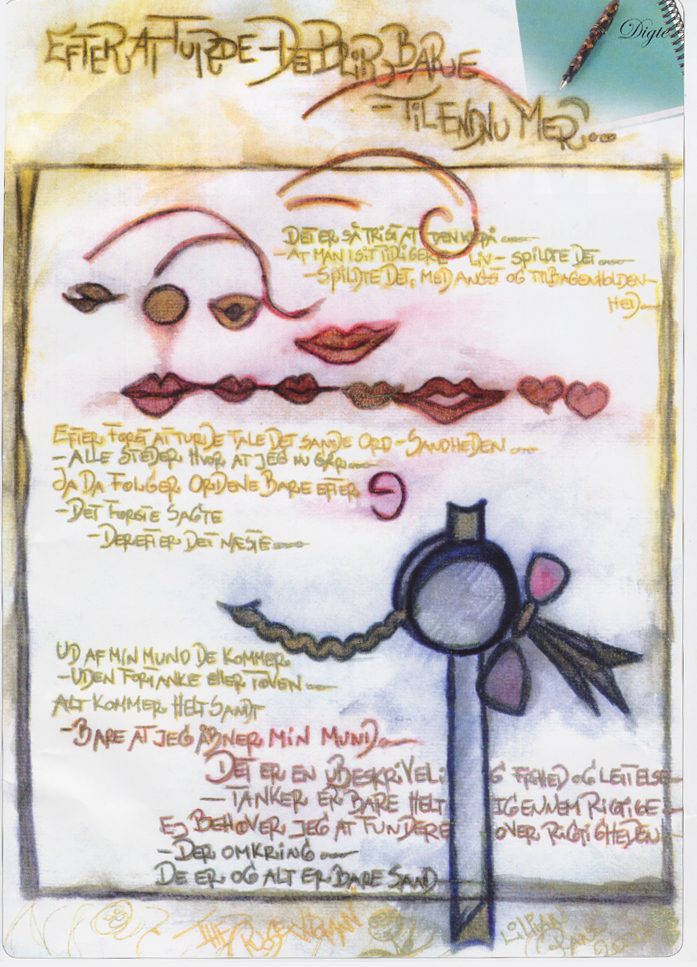 EFTER AT TURDE - DET BLIR BARE
- TIL ENDNU MER...
Digte
DET ER SÅ TRIST AT TÆNKE PÅ
- AT MAN I SIT TIDLIGERE LIV - SPILDTE DET
- SPILDTE DET, MED ANGST OG TILBAGEHOLDEN-
HED
EFTER FØRST AT TURDE TALE DET SANDE ORD - SANDHEDEN
- ALLE STEDER HVOR AT JEG NU GÅR
JA DA FØLGER ORDENE BARE EFTER
- DET FØRSTE SAGTE
- DEREFTER DET NÆSTE
UD AF MIN MUND DE KOMMER
- UDEN FORTANKE ELLER TØVEN
ALT KOMMER HELT SANDT
- BARE AT JEG ÅBNER MIN MUND
DET ER EN UBESKRIVELI G FRIHED OG LETTELSE
- TANKER ER BARE HELT IGENNEM RIGTIGE
EJ BEHØVER JEG AT FUNDERE OVER RIGTIGHEDEN
- DER OMKRING
DE ER OG ALT ER BARE SAND
THE ROSE WOMAN
LILLIAN